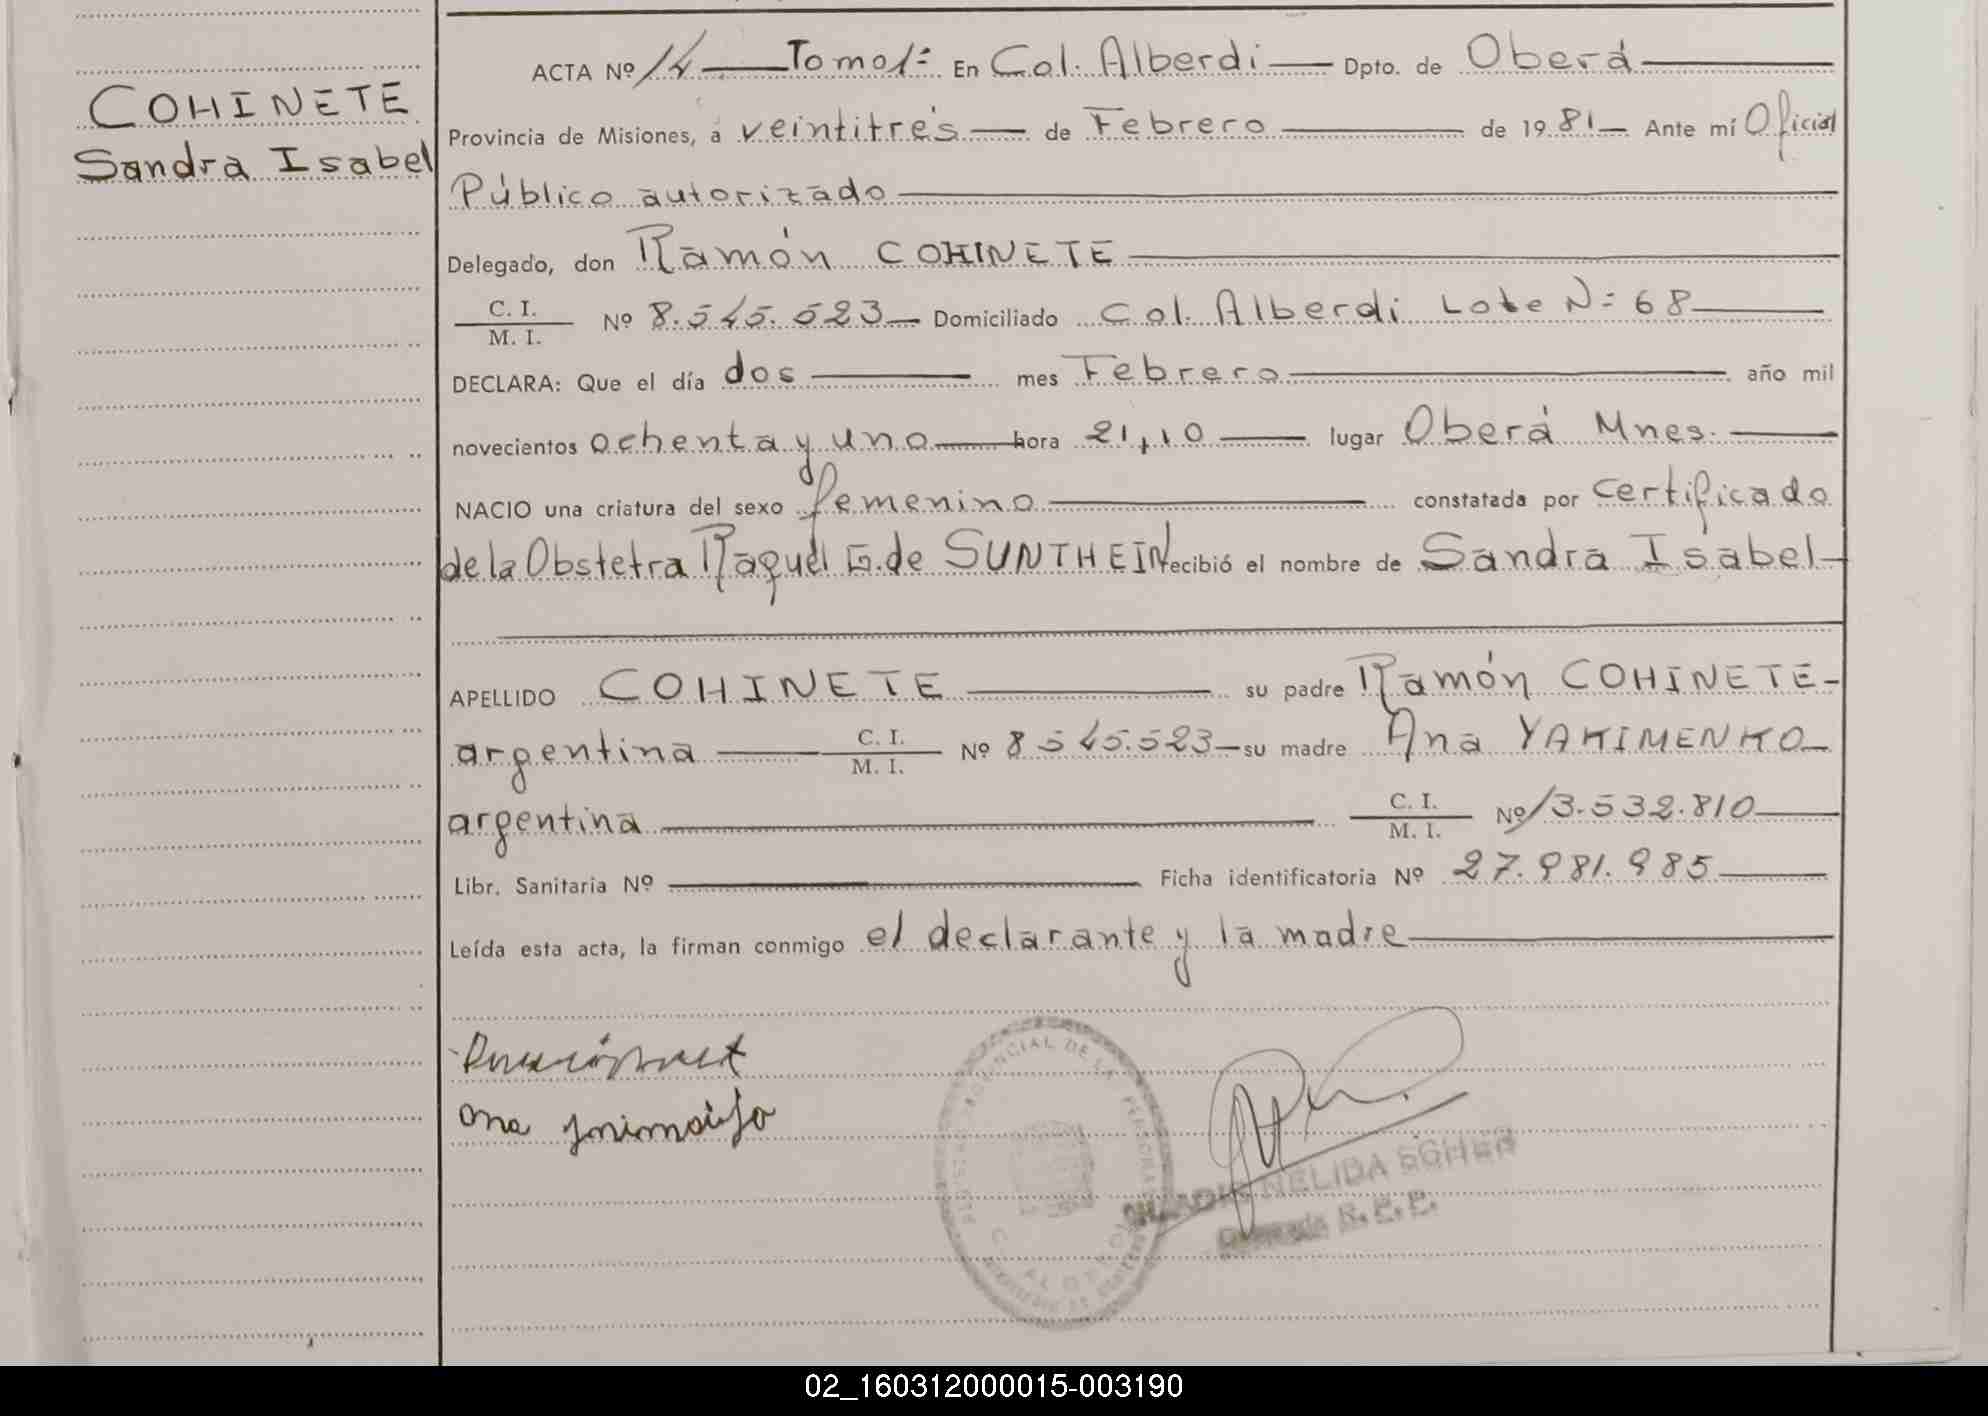 COHINETE
Sandra Isabel
ACTA Nº 14 — Tomo 1º En Col. Alberdi — Dpto. de Oberá
Provincia de Misiones, a veintitrés — de Febrero — de 1981 — Ante mí Oficial
Público autorizado
Delegado, don Ramón COHINETE
C. I.
M. I. Nº 8.545.523 — Domiciliado Col. Alberdi Lote Nº 68
DECLARA: Que el día dos — mes Febrero — año mil
novecientos ochenta y uno — hora 21,10 — lugar Oberá Mnes.
NACIO una criatura del sexo femenino — constatada por certificado
de la Obstetra Raquel G. de SUNTHEIN recibió el nombre de Sandra Isabel
APELLIDO COHINETE — su padre Ramón COHINETE
argentina — C. I.
M. I. Nº 8.545.523 — su madre Ana YAKIMENKO
argentina — C. I.
M. I. Nº 13.532.810
Libr. Sanitaria Nº — Ficha identificatoria Nº 27.981.985
Leída esta acta, la firman conmigo el declarante y la madre
Ana
PROVINCIAL DE LA PERSONAS
NELIDA
R. P. P.
02_160312000015-003190